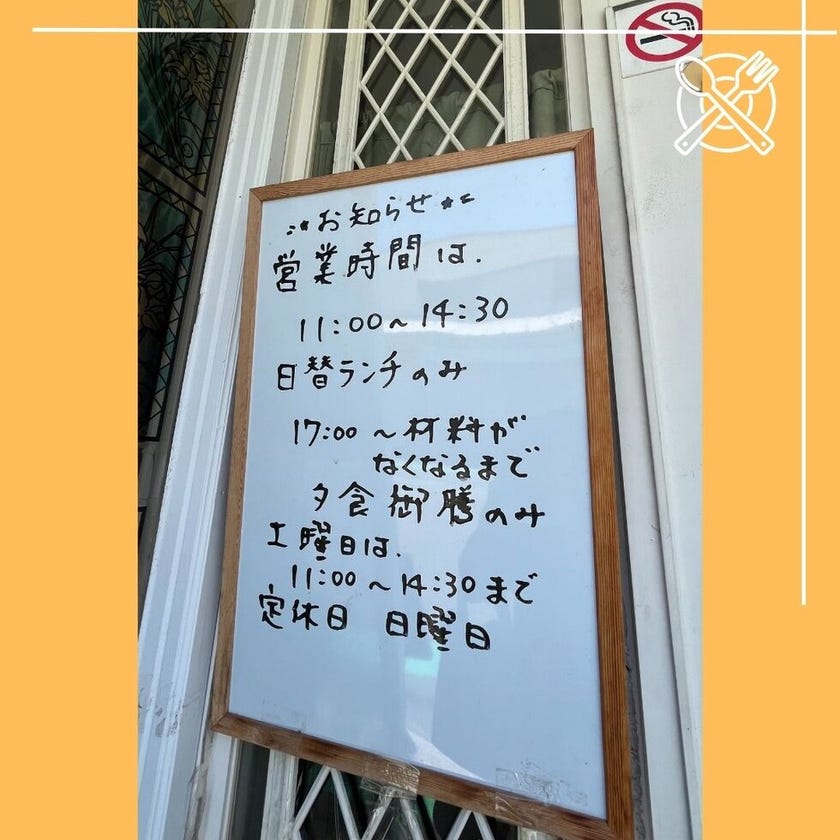 お知らせ
営業時間は.
11:00~14:30
日替ランチのみ
17:00~材料が
なくなるまで
夕食御膳のみ
土曜日は.
11:00~14:30まで
定休日 日曜日